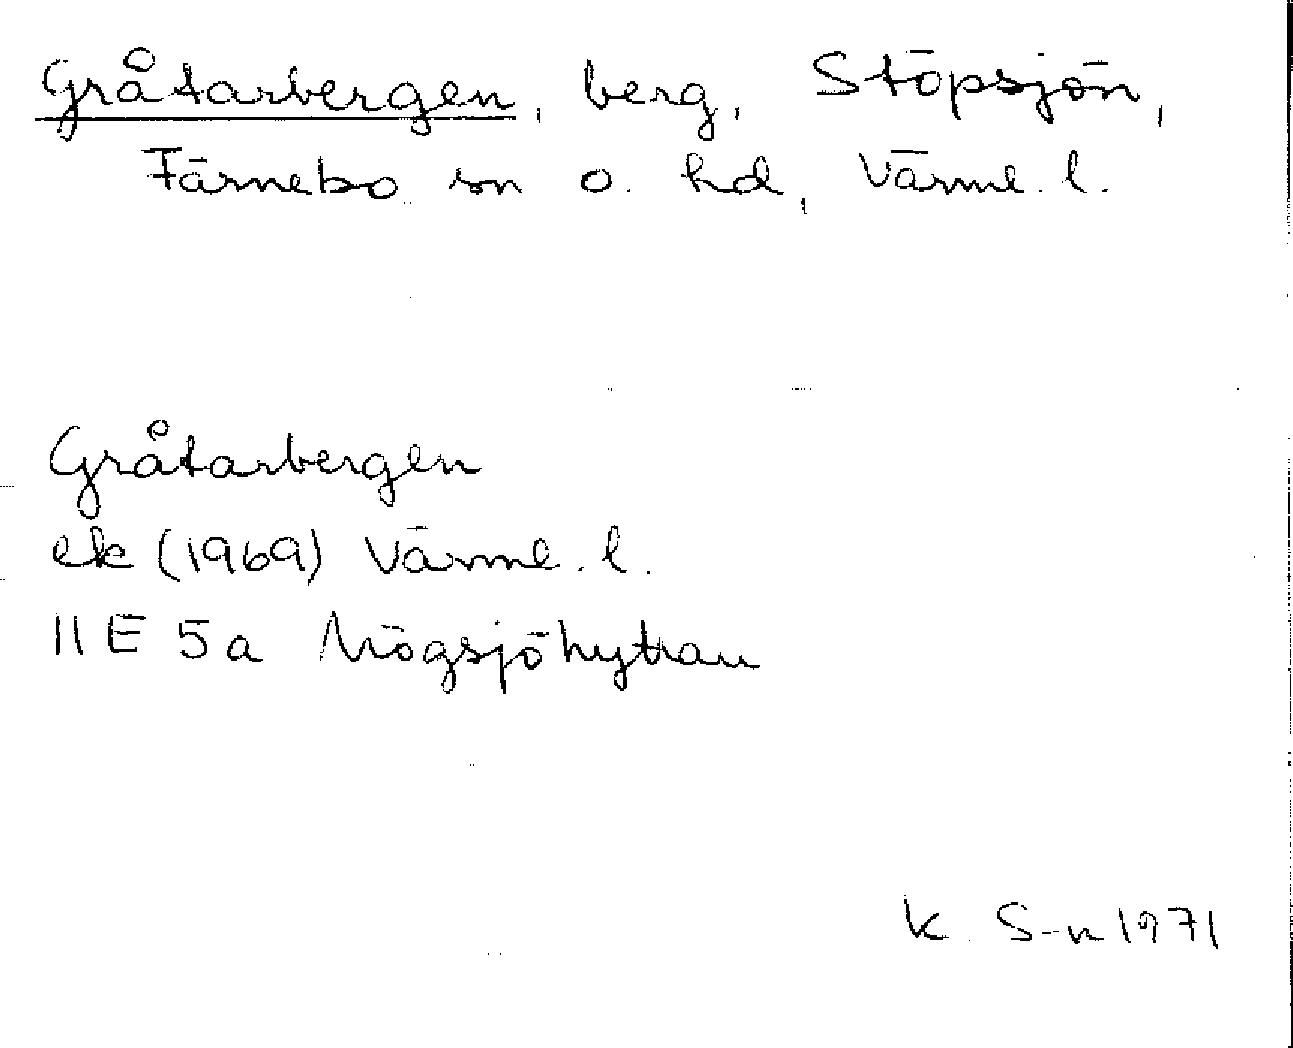 Gråtarbergen, berg, Stöpsjön,
Färnebo sn o. hd, Värml. l.
Gråtarbergen
ek (1969) Värml. l.
11E 5a Mögsjöhyttan
K. S-n 1971